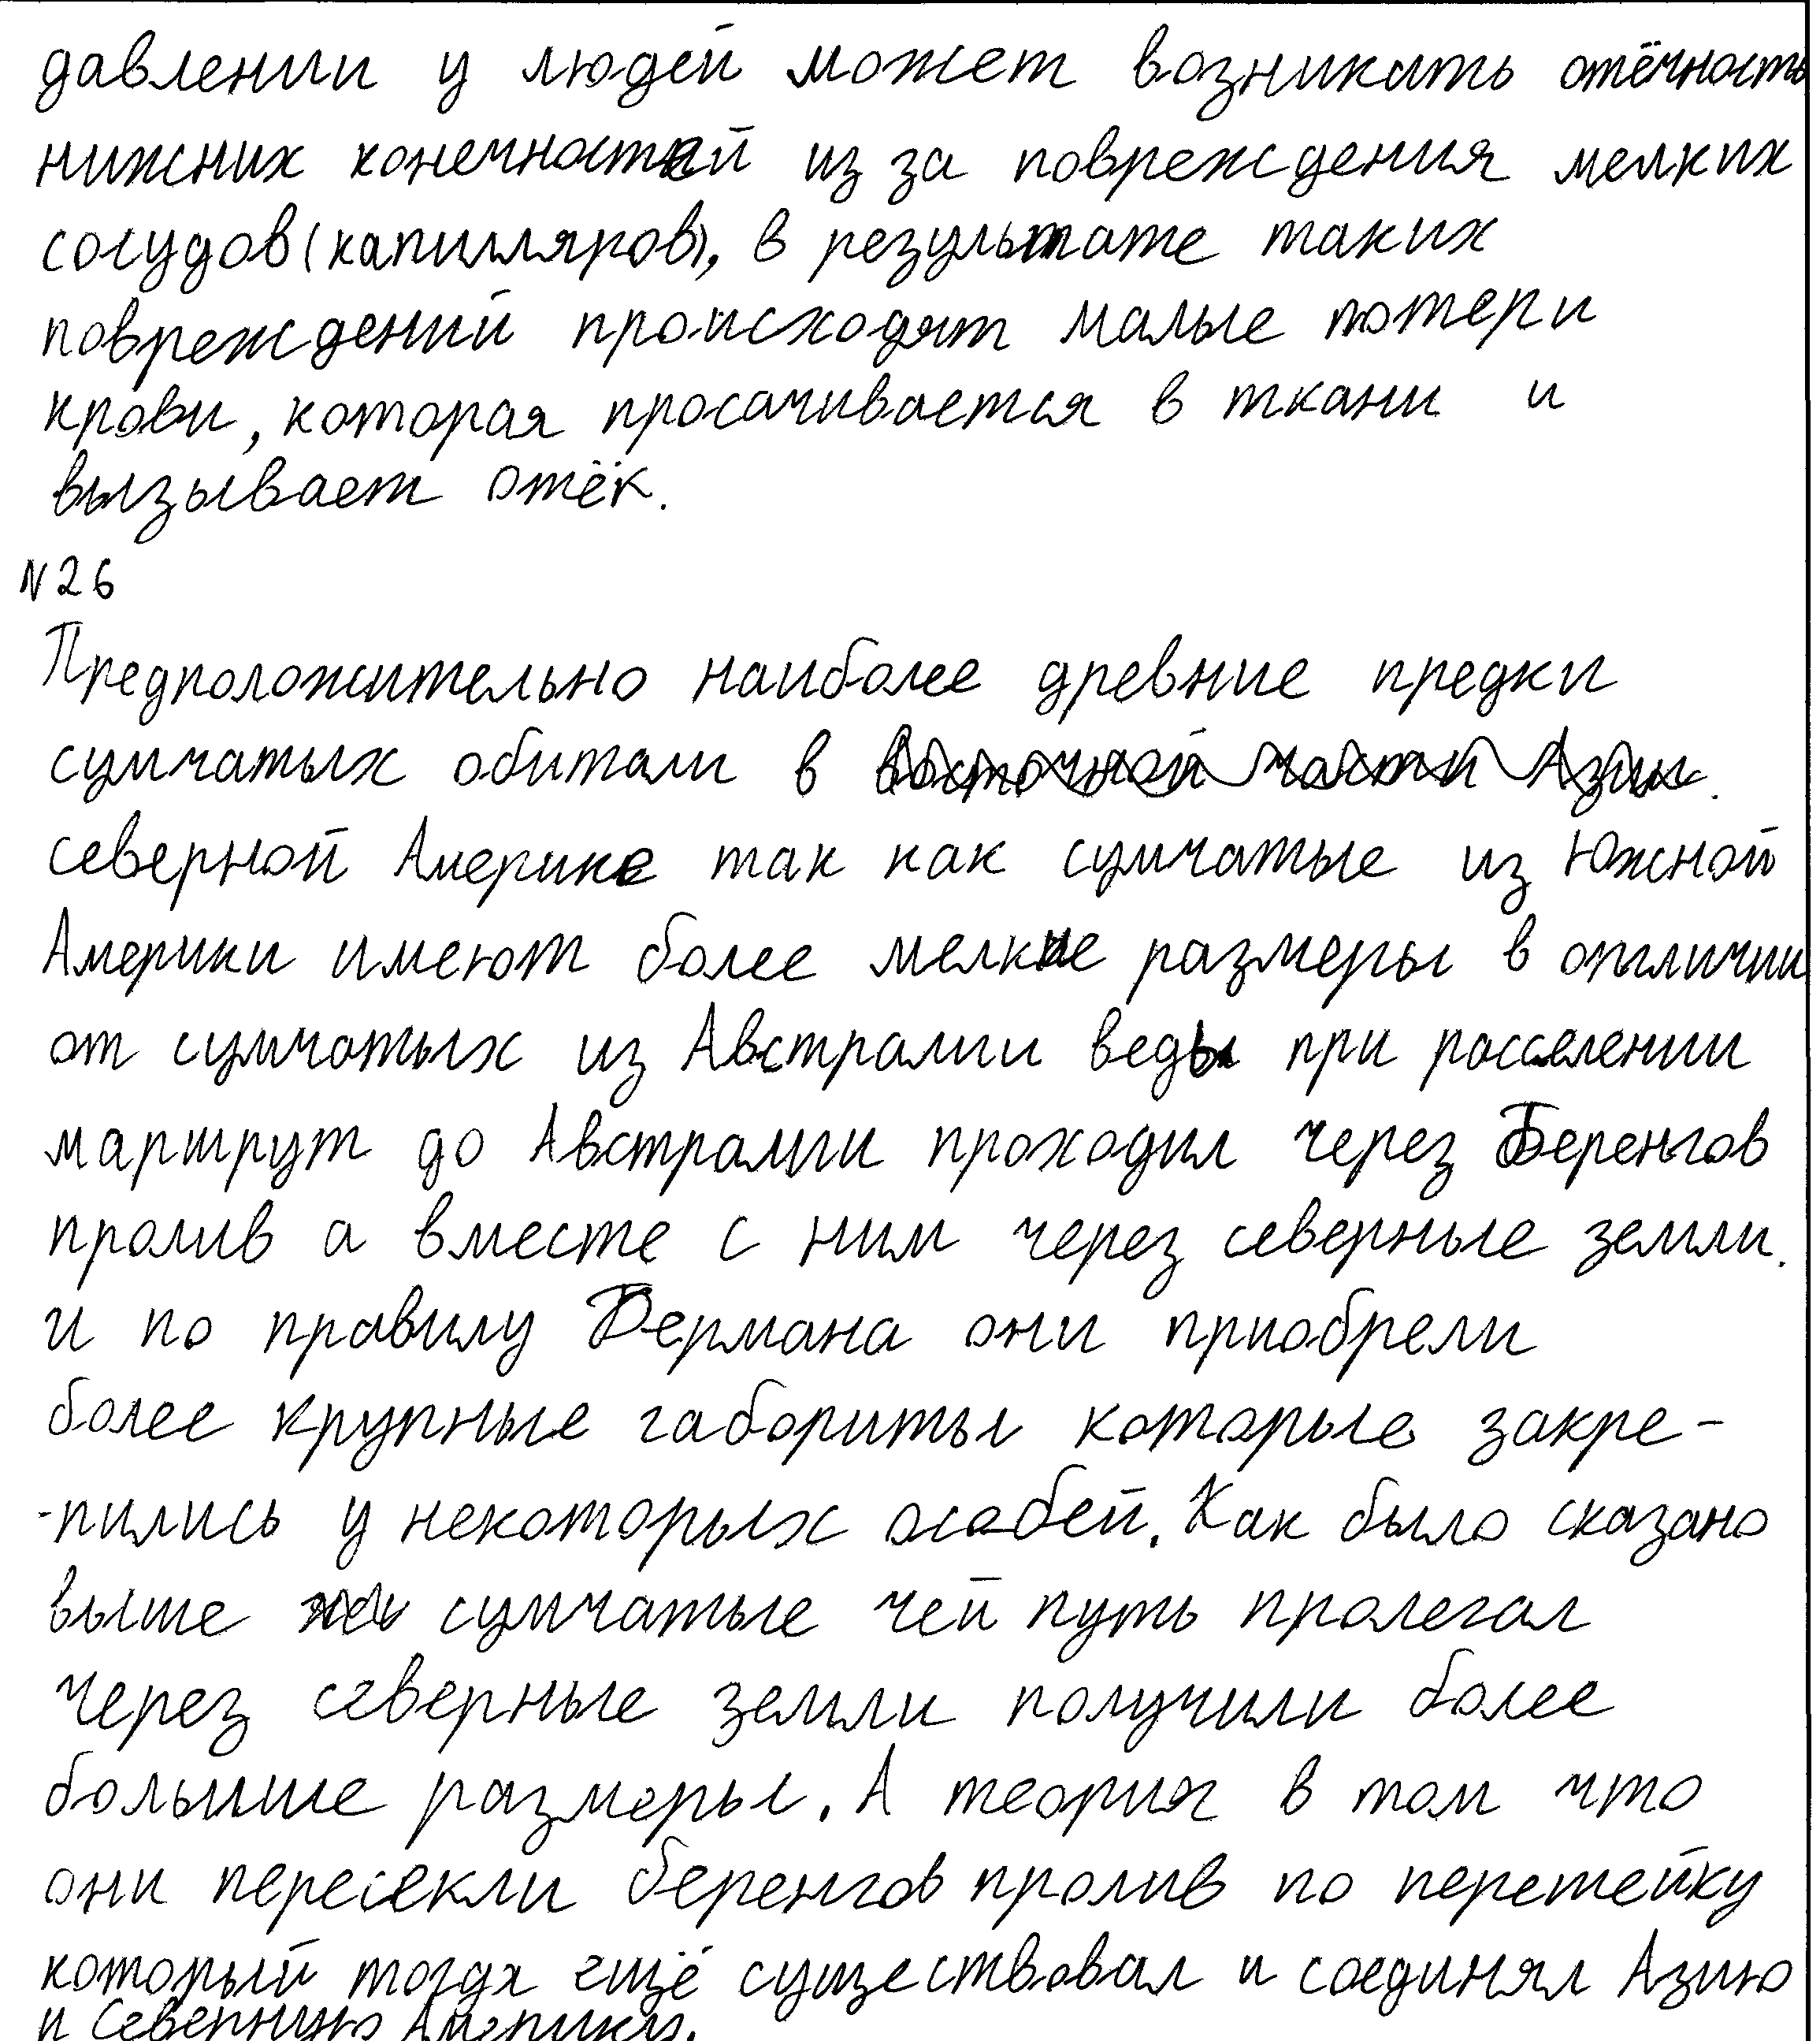 давлении у людей может возникать отёчность
нижних конечностей из за повреждения мелких
сосудов (капилляров), в результате таких
повреждений происходят малые потери
крови, которая просачивается в ткани и
вызывает отёк.
N26
Предположительно наиболее древние предки
сумчатых обитали в восточной части Азии.
северной Америке так как сумчатые из Южной
Америки имеют более мелкие размеры в отличии
от сумчатых из Австралии ведь при расселении
маршрут до Австралии проходил через Беренгов
пролив а вместе с ним через северные земли.
и по правилу Бермана они приобрели
более крупные габориты которые закре-
-пились у некоторых особей. Как было сказано
выше сумчатые чей путь пролегал
через северные земли получили более
большие размеры. А теория в том что
они пересекли беренгов пролив по перешейку
который тогда ещё существовал и соединял Азию
и Северную Америку.